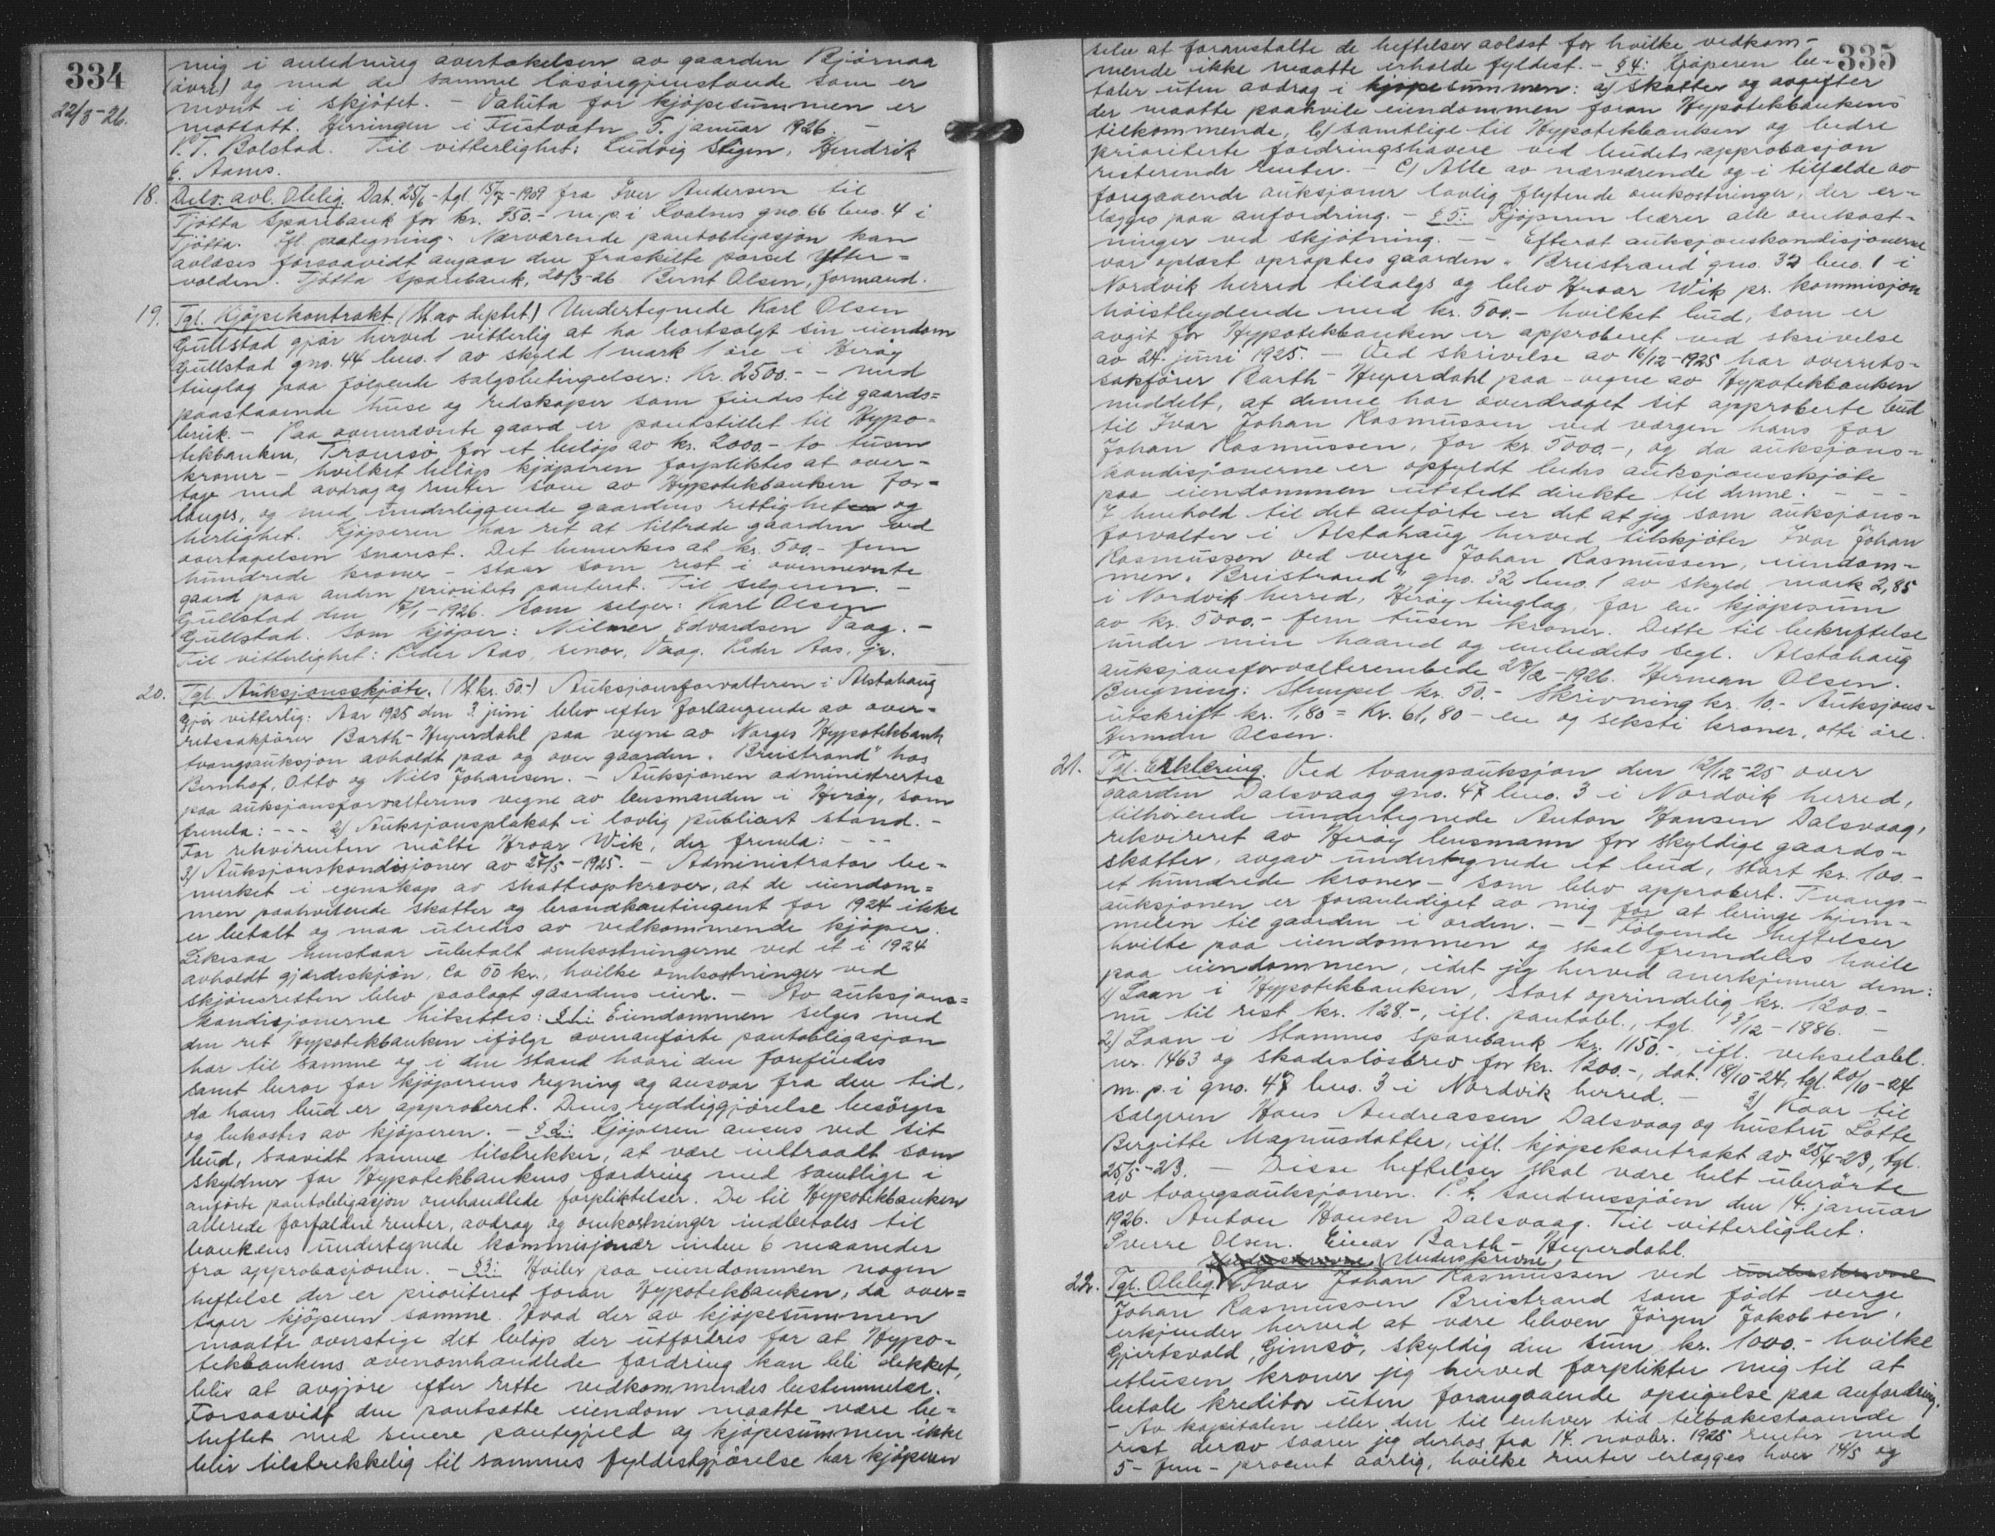 334
22/3-26.
mig i anledning overtakelsen av gaarden Bjørnaa
(øvre) og med de samme løsøregjenstande som er
nevnt i skjøtet. - Valuta for kjøpesummen er
mottatt. Herringen i Fustvatn 5. januar 1926. -
P. T. Bolstad. Til vitterlighet: Ludvig Stigen, Hendrik
E. Aanes.
18. Delv. avl. Oblig. Dat. 25/6 - tgl. 15/7-1909 fra Iver Andersen til
Tjøtta Sparebank for kr. 350.- m. p. i Kvalnes gno. 66 bno. 4 i
Tjøtta. Ifl. paategning. Nærværende pantobligasjon kan
avlæses forsaavidt angaar den fraskilte parsel Ytter-
volden. Tjøtta Sparebank, 20/3-26 Bernt Olsen, formand.
19. Tgl. Kjøpekontrakt (St. av deptet) Undertegnede Karl Olsen
Gullstad gjør herved vitterlig at ha bortsolgt sin eiendom
Gullstad gno. 44 bno. 1 av skyld 1 mark 1 øre i Herøy
tinglag paa følgende salgsbetingelser: Kr. 2500.- - med
paastaaende huse og redskaper som findes til gaards=
bruk. - Paa ovennævnte gaard er pantstillet til Hypo-
tekbanken, Tromsø for et beløp av kr. 2000.- to tusen
kroner - hvilket beløp kjøperen forpliktes at over-
tage med avdrag og renter som av Hypotekbanken for-
langes, og med underliggende gaardens rettigheter og
herlighet. Kjøperen har ret at tiltræde gaarden ved
overtagelsen snarest. Det bemerkes at kr. 500.- fem
hundrede kroner - staar som rest i ovennevnte
gaard paa anden prioritets panteret. Til selgeren. -
Gullstad den 17/1-1926. Som selger: Karl Olsen
Gullstad. Som kjøper: Nilmer Edvardsen Vaag. -
Til vitterlighet: Peder Aas, senor, Vaag. Peder Aas, jr.
20. Tgl. Auksjonsskjøte. (St. kr. 50.-) Auksjonsforvalteren i Alstahaug
gjør vitterlig: Aar 1925 den 3. juni blev efter forlangende av over-
retssakfører Barth-Heyerdahl paa vegne av Norges Hypotekbank
tvangsauksjon avholdt paa og over gaarden "Breistrand" hos
Bernhof, Otto og Nils Johansen. - Auksjonen administrertes
paa auksjonsforvalterens vegne av lensmanden i Herøy, som
fremla: - - - 2) Auksjonsplakat i lovlig publisert stand. -
For rekvirenten møtte Hroar Wik, der fremla: - - -
3) Auksjonskondisjoner av 27/5-1925. - Administrator be-
merket i egenskap av skatteopkræver, at de eiendom=
men paahvilende skatter og brandkontingent for 1924 ikke
er betalt og maa utredes av vedkommende kjøper.
Likesaa henstaar ubetalt omkostningerne ved et i 1924
avholdt gjærdeskjøn, ca 50 kr., hvilke omkostninger ved
skjønsretten blev paalagt gaardens eiere. - Av auksjons=
kondisjonerne hitsettes: § 1: Eiendommen selges med
den ret Hypotekbanken ifølge ovenanførte pantobligasjon
har til samme og i den stand hvori den forefindes
samt beror for kjøperens regning og ansvar fra den tid,
da hans bud er approberet. Dens ryddiggjørelse besørges
og bekostes av kjøperen. - § 2: Kjøperen anses ved sit
bud, saavidt samme tilstrekker, at være indtraadt som
skyldner for Hypotekbankens fordring med samtlige i
anførte pantobligasjon omhandlede forpliktelser. De til Hypotekbanken
allerede forfaldne renter, avdrag og omkostninger indbetales til
bankens undertegnede kommisjonær inden 6 maaneder
fra approbasjonen. - § 3: Hviler paa eiendommen nogen
heftelse der er prioriteret foran Hypotekbanken, da over=
tager kjøperen samme. Hvad der av kjøpesummen
maatte overstige det beløp der utfordres for at Hypo-
tekbankens ovenomhandlede fordring kan bli dekket,
blir at avgjøre efter rette vedkommendes bestemmelse.
Forsaavidt den pantsatte eiendom maatte være be-
heftet med senere pantegjeld og kjøpesummen ikke
blir tilstrekkelig til sammes fyldestgjørelse har kjøperen
335
selv at foranstalte de heftelser avløst for hvilke vedkom-
mende ikke maatte erholde fyldest. - § 4: Kjøperen be-
taler uten avdrag i kjøpesummen: a) skatter og avgifter
der maatte paahvile eiendommen foran Hypotekbankens
tilkommende, b) samtlige til Hypotekbanken og bedre
prioriterte fordringshavere ved budets approbasjon
resterende renter. - c) Alle av nærværende og i tilfælde av
foregaaende auksjoner lovlig flytende omkostninger, der er-
lægges paa anfordring. - § 5: Kjøperen bærer alle omkost-
ninger ved skjøtning. - - Efterat auksjonskondisjonerne
var oplæst opraptes gaarden "Breistrand" gno. 32 bno. 1 i
Nordvik herred tilsalgs og blev Hroar Wik pr. kommisjon
høistbydende med kr. 500.- hvilket bud, som er
avgit for Hypotekbanken er approberet ved skrivelse
av 24. juni 1925. - Ved skrivelse av 16/12-1925 har overrets-
sakfører Barth-Heyerdahl paa - vegne av Hypotekbanken
meddelt, at denne har overdraget sit approberte bud
til Ivar Johan Rasmussen ved værgen hans far
Johan Rasmussen, for kr. 5000.-, og da auksjons-
kondisjonerne er opfyldt bedes auksjonsskjøte
paa eiendommen utstedt direkte til denne. - - -
I henhold til det anførte er det at jeg som auksjons-
forvalter i Alstahaug herved tilskjøter Ivar Johan
Rasmussen ved verge Johan Rasmussen, eiendom-
men "Breistrand" gno. 32 bno. 1 av skyld mark 2,85
i Nordvik herred, Herøy tinglag, for en kjøpesum
av kr. 5000.- fem tusen kroner. Dette til bekreftelse
under min haand og embedets segl. Alstahaug
auksjonsforvalterembede 23/2-1926. Herman Olsen.
Beregning: Stempel kr. 50.- Skrivning kr. 10.- Auksjons=
utskrift kr. 1,80 = Kr. 61,80 - en og seksti kroner, otti øre.
Herman Olsen.
21. Tgl. Erklæring. Ved tvangsauksjon den 12/12-25 over
gaarden Dalsvaag gno. 47 bno. 3 i Nordvik herred,
tilhørende undertegnede Anton Hansen Dalsvaag,
rekvireret av Herøy lensmann for skyldige gaards-
skatter, avgav undertegnede et bud, stort kr. 100.-
et hundrede kroner - som blev approbert. Tvangs-
auksjonen er foranlediget av mig for at bringe hjem-
melen til gaarden i orden. - - Følgende heftelser
hvilte paa eiendommen og skal fremdeles hvile
paa eiendommen, idet jeg herved anerkjenner dem:
1) Laan i Hypotekbanken, stort oprindelig kr. 1200.-
nu til rest kr. 128.-, ifl. pantobl., tgl. 13/12-1886. -
2) Laan i Stamnes Sparebank kr. 1150.- ifl. vekselobl.
nr. 1463 og skadesløsbrev for kr. 1200.-, dat. 18/10-24, tgl. 20/10-24
m. p. i gno. 47 bno. 3 i Nordvik herred. - 3) Kaar til
sælgeren Hans Andreassen Dalsvaag og hustru Lotte
Bergitte Magnusdatter, ifl. kjøpekontrakt av 25/4-23, tgl.
25/5-23. - Disse heftelser skal være helt uberørte
av tvangsauksjonen. P. t. Sandnessjøen den 14. januar
1926. Anton Hansen Dalsvaag. Til vitterlighet:
Sverre Olsen. Einar Barth-Heyerdahl.
Underskrevne
22. Tgl. Oblig. Ivar Johan Rasmussen ved underskrevne
Johan Rasmussen Breistrand som født verge
erkjender herved at være bleven Jørgen Jakobsen,
Gjertsvold, Gimsø, skyldig den sum kr. 1000.- hvilke
ettusen kroner jeg herved forplikter mig til at
betale kreditor uten forangaaende opsigelse paa anfordring.
- Av kapitalen eller den til enhver tid tilbakestaaende
rest derav svarer jeg derhos fra 14. novbr. 1925 renter med
5 - fem - procent aarlig, hvilke renter erlægges hver 14/5 og